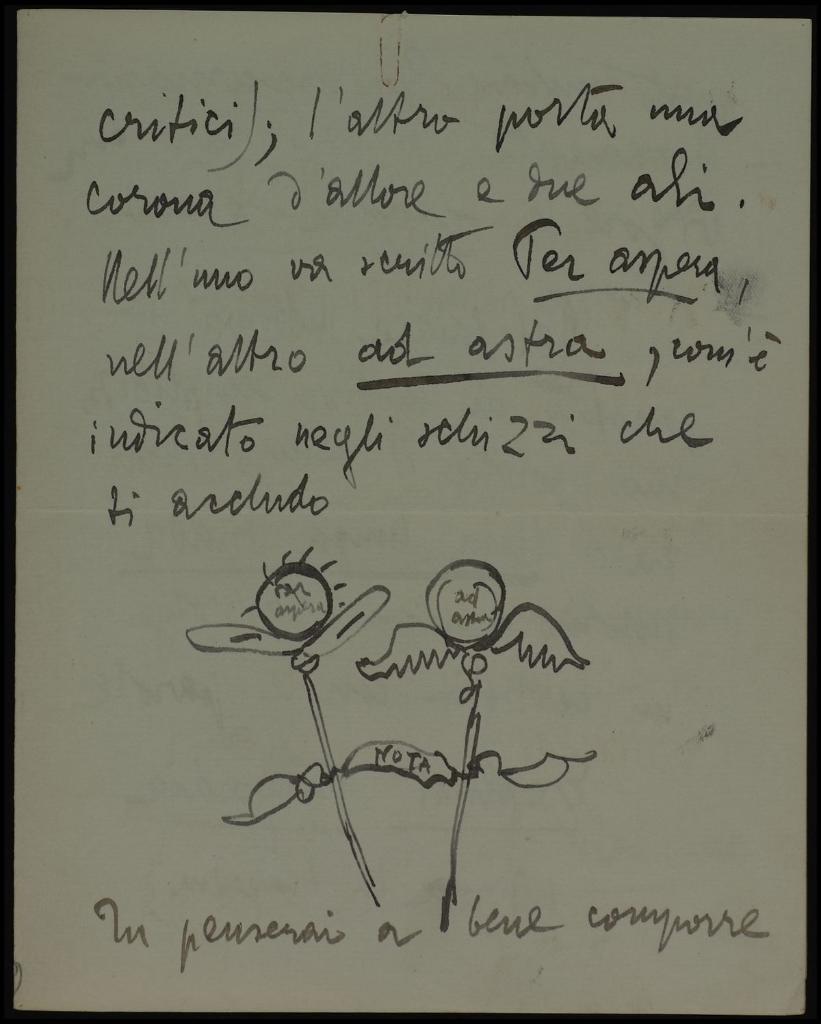 critici); l'altro porta una
corona d'allore e due ali.
Nell'uno va scritto Per aspera,
nell'altro ad astra, com'è
indicato negli schizzi che
ti accludo
per
aspera
ad
astra
NOTA
Tu penserai a bene comporre